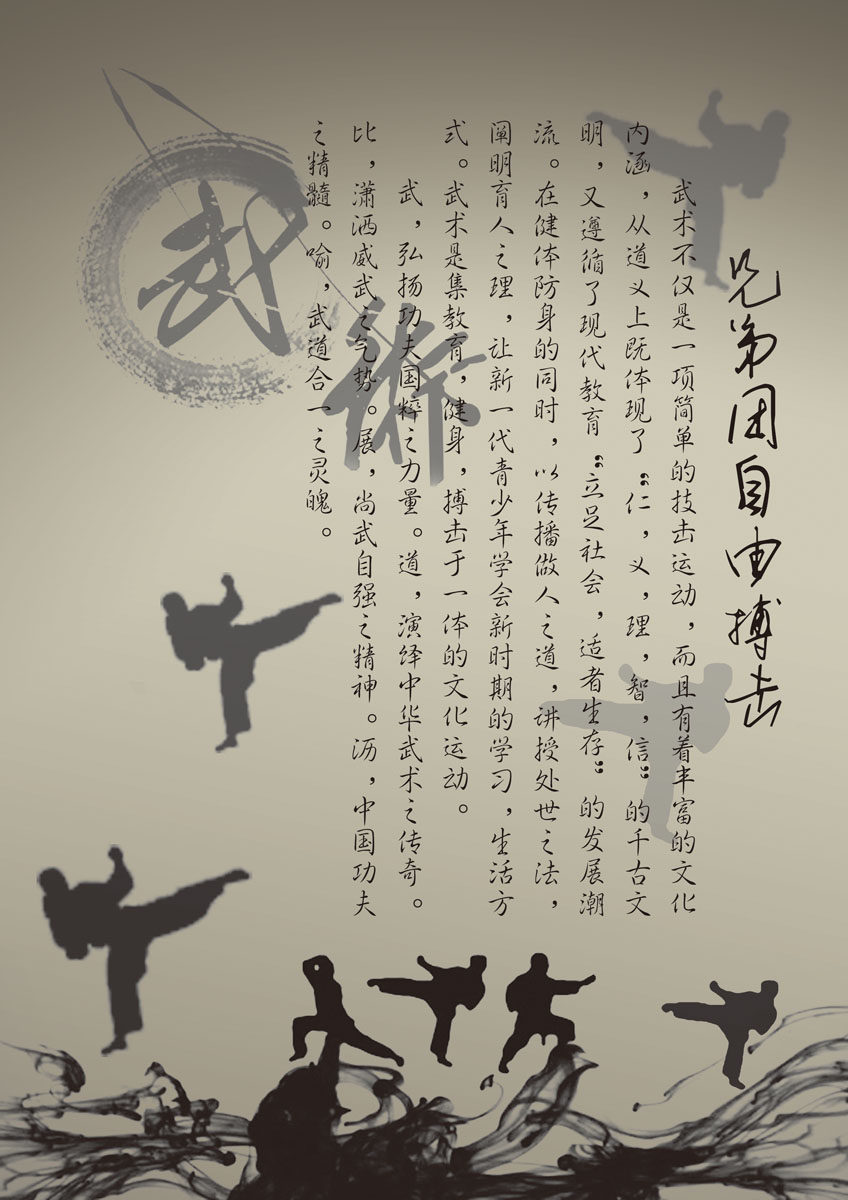 兄弟团自由搏击
武术不仅是一项简单的技击运动，而且有着丰富的文化
内涵，从道义上既体现了“仁，义，理，智，信”的千古文
明，又遵循了现代教育“立足社会，适者生存”的发展潮
流。在健体防身的同时，以传播做人之道，讲授处世之法，
阐明育人之理，让新一代青少年学会新时期的学习，生活方
式。武术是集教育，健身，搏击于一体的文化运动。
武，弘扬功夫国粹之力量。道，演绎中华武术之传奇。
比，潇洒威武之气势。展，尚武自强之精神。沥，中国功夫
之精髓。喻，武道合一之灵魄。
武術